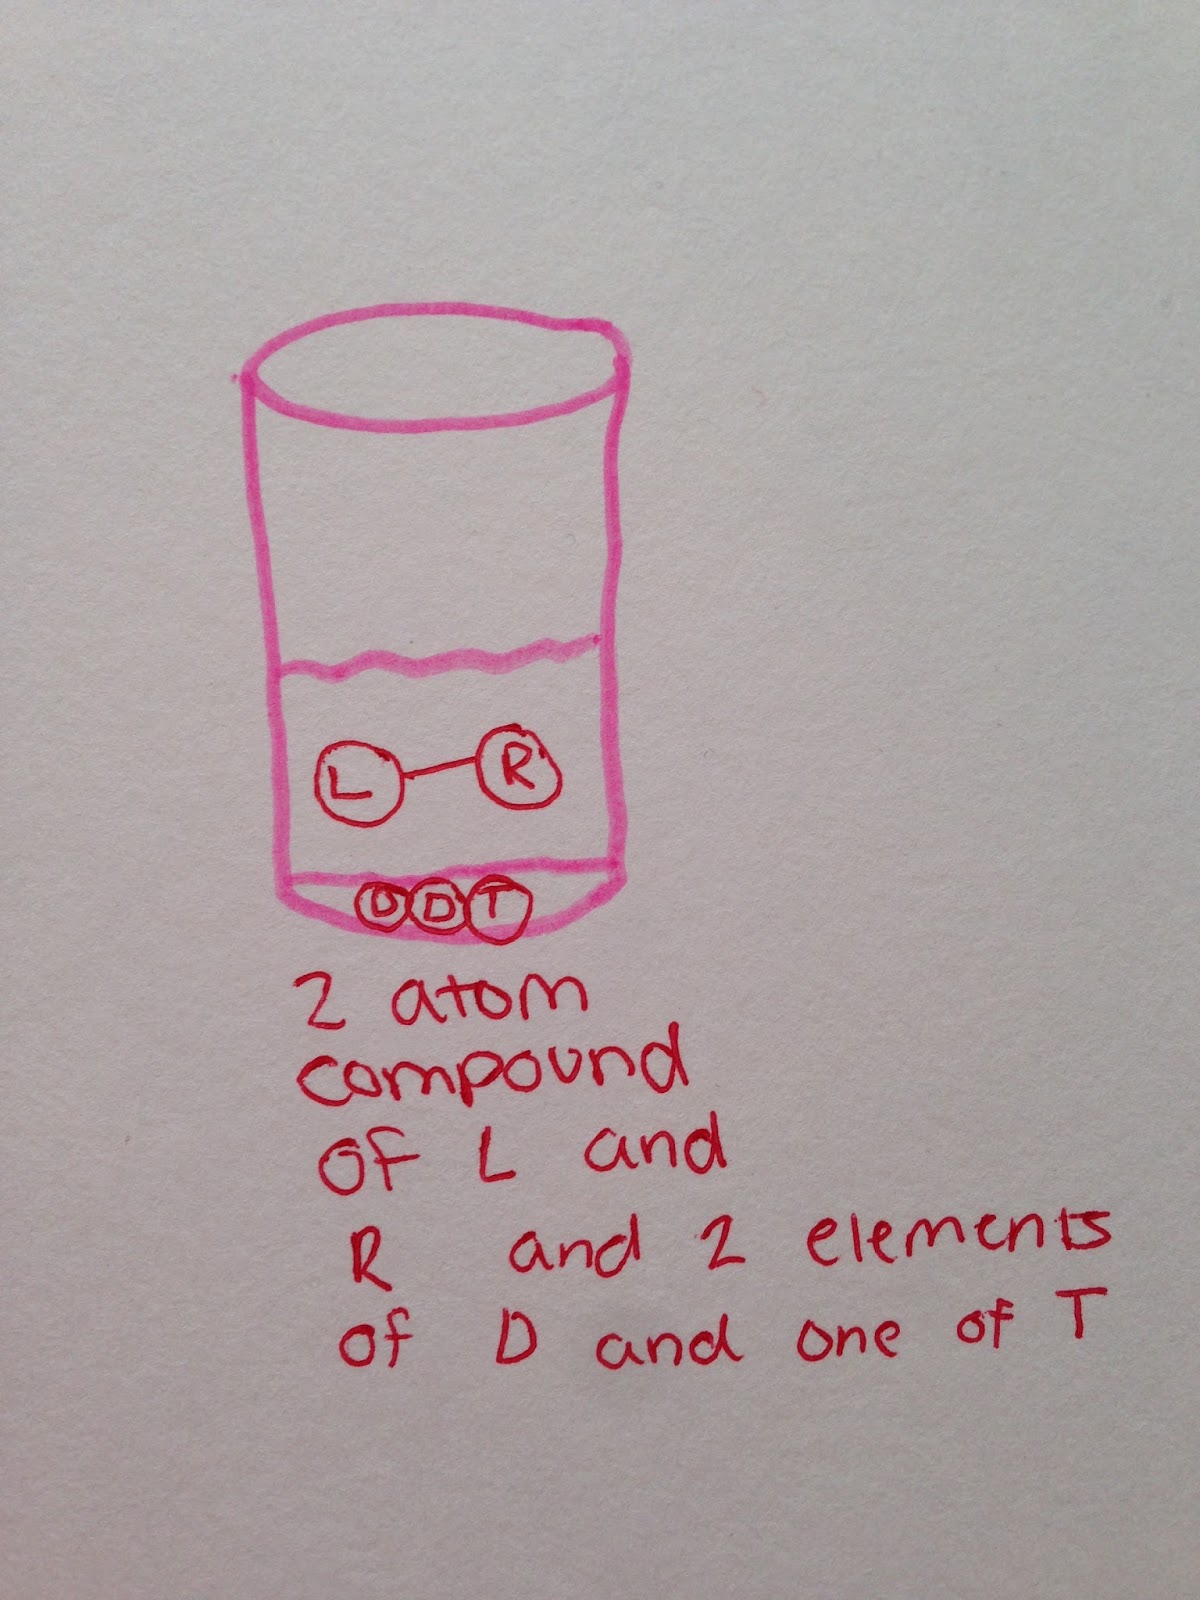 L R
D D T
2 atom
compound
of L and
R and 2 elements
of D and one of T